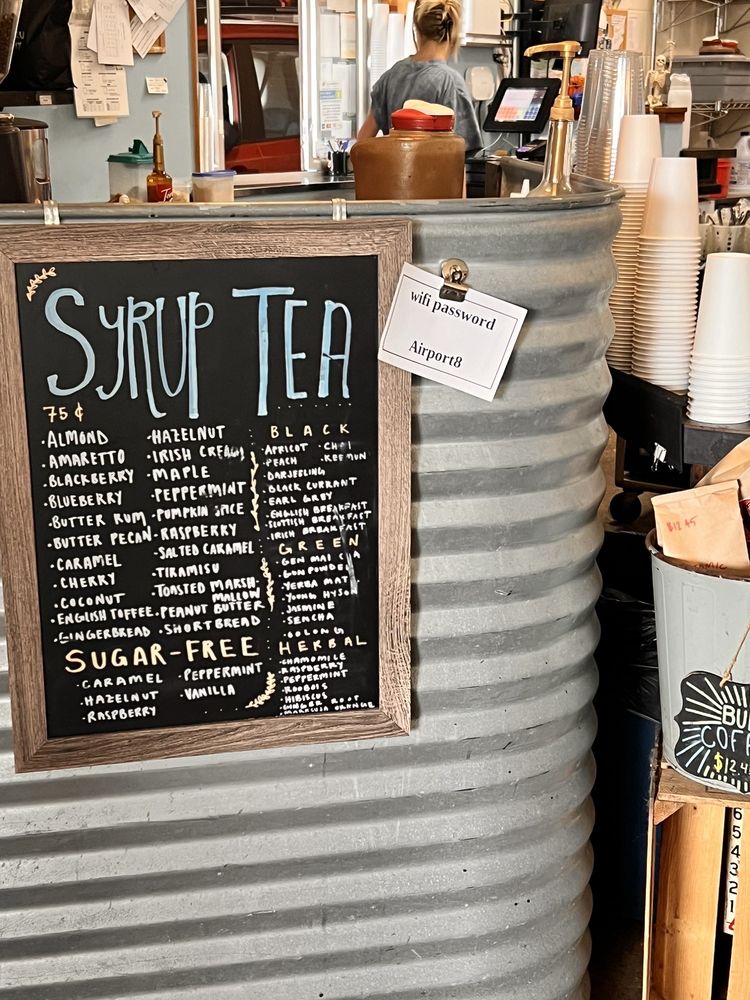 SYRUP
75 ¢
·ALMOND
·AMARETTO
·BLACKBERRY
·BLUEBERRY
·BUTTER RUM
·BUTTER PECAN
·CARAMEL
·CHERRY
·COCONUT
·ENGLISH TOFFEE
·GINGERBREAD
·HAZELNUT
·IRISH CREAM
·MAPLE
·PEPPERMINT
·PUMPKIN SPICE
·RASPBERRY
·SALTED CARAMEL
·TIRAMISU
·TOASTED MARSH
MALLOW
·PEANUT BUTTER
·SHORTBREAD
SUGAR-FREE
·CARAMEL
·HAZELNUT
·RASPBERRY
·PEPPERMINT
·VANILLA
TEA
BLACK
·APRICOT ·CHAI
·PEACH ·KEEMUN
·DARJEELING
·BLACK CURRANT
·EARL GREY
·ENGLISH BREAKFAST
·SCOTTISH BREAKFAST
·IRISH BREAKFAST
GREEN
·GEN MAI CHA
·GUN POWDER
·YERBA MATE
·YOUNG HYSON
·JASMINE
·SENCHA
·OOLONG
HERBAL
·CHAMOMILE
·RASPBERRY
·PEPPERMINT
·ROOBOIS
·HIBISCUS
·GINGER ROOT
ORANGE
wifi password
Airport8
$12.45
COF
$12.4
6
5
4
3
2
1